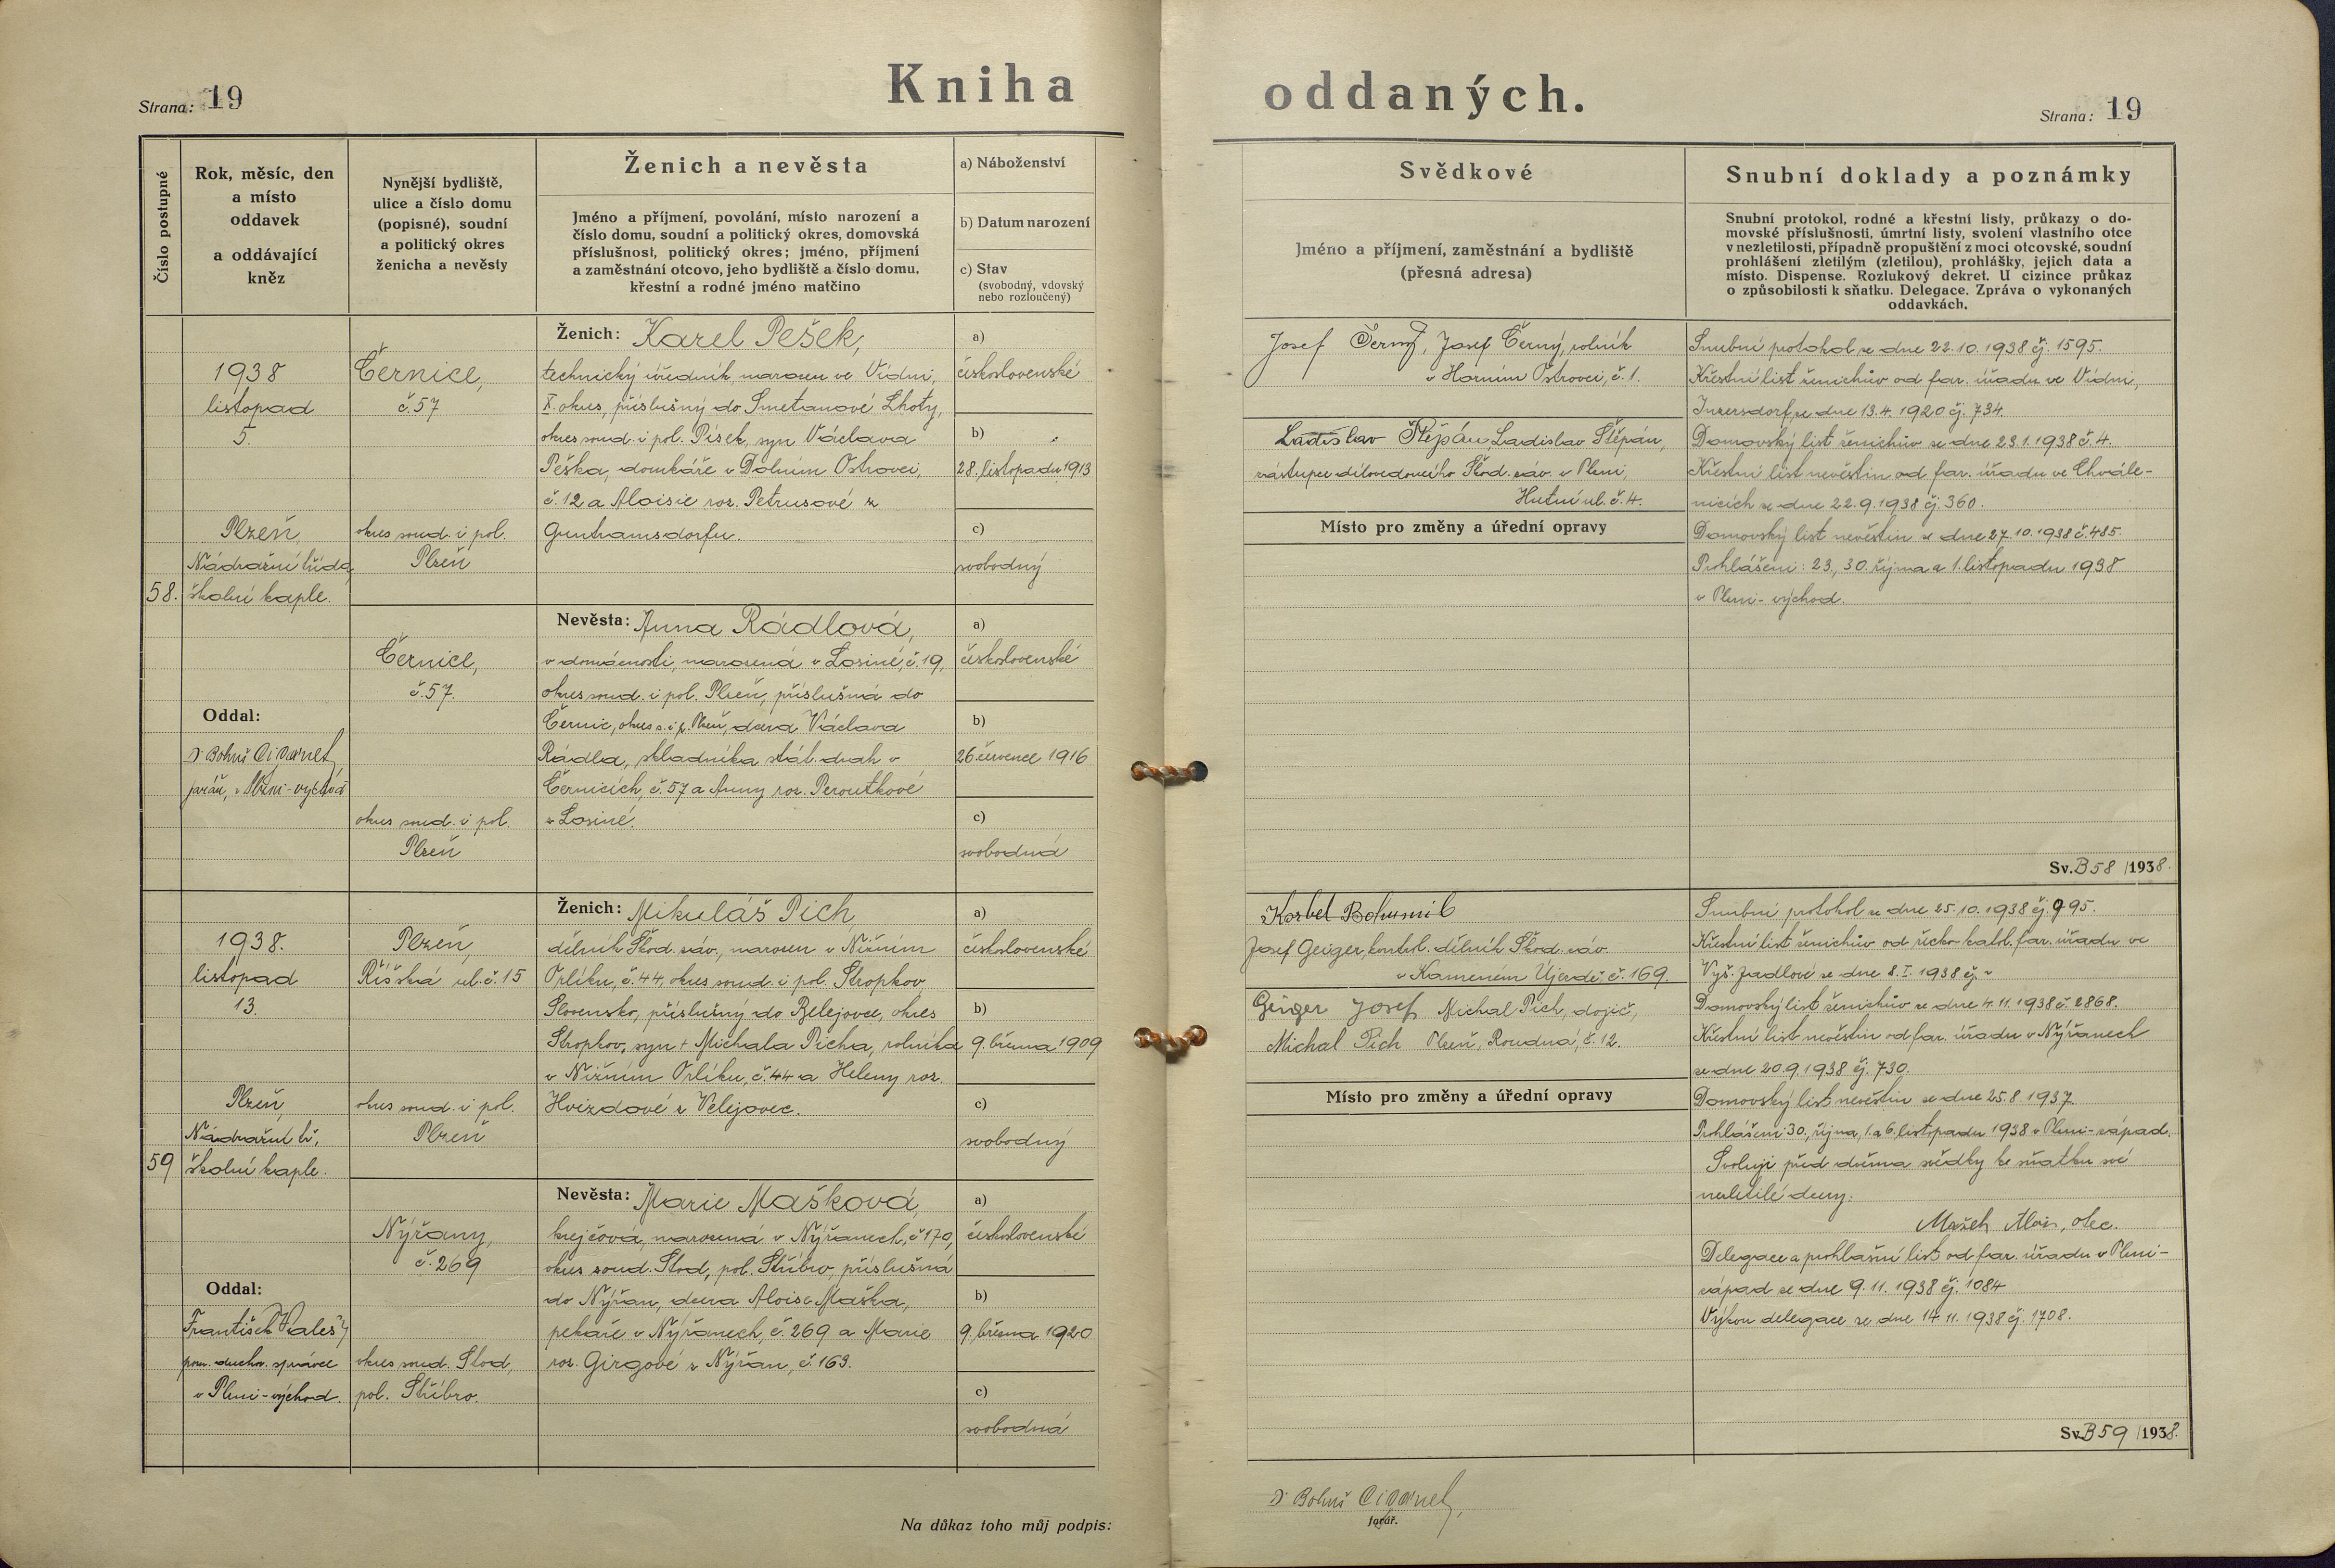 Strana: 19
Kniha
oddaných.
Strana: 19
Číslo postupné
Rok, měsíc, den
a místo
oddavek
a oddávající
kněz
Nynější bydliště,
ulice a číslo domu
(popisné), soudní
a politický okres
ženicha a nevěsty
Ženich a nevěsta
Jméno a příjmení, povolání, místo narození a
číslo domu, soudní a politický okres, domovská
příslušnost, politický okres; jméno, příjmení
a zaměstnání otcovo, jeho bydliště a číslo domu,
křestní a rodné jméno matčino
a) Náboženství
b) Datum narození
c) Stav
(svobodný, vdovský
nebo rozloučený)
Svědkové
Jméno a příjmení, zaměstnání a bydliště
(přesná adresa)
Snubní doklady a poznámky
Snubní protokol, rodné a křestní listy, průkazy o do-
movské příslušnosti, úmrtní listy, svolení vlastního otce
v nezletilosti, případně propuštění z moci otcovské, soudní
prohlášení zletilým (zletilou), prohlášky, jejich data a
místo. Dispense. Rozlukový dekret. U cizince průkaz
o způsobilosti k sňatku. Delegace. Zpráva o vykonaných
oddavkách.
58.
1938
listopad
5.
Plzeň,
Nádražní třída,
školní kaple.
Oddal:
Dr Bohuš
farář, v Plzni-východ
Černice,
č. 57
okres soud. i pol.
Plzeň
Černice,
č. 57.
okres soud. i pol.
Plzeň
Ženich: Karel Pešek,
technický úředník, narozen ve Vídni,
X. okres, příslušný do Smetanové Lhoty,
okres soud. i pol. Písek, syn Václava
Peška, domkáře v Dolním Ostrovci,
č. 12 a Aloisie roz. Petrusové z
Guntramsdorfu.
a)
československé
b)
28. listopadu 1913
c)
svobodný
Nevěsta: Anna Rádlová,
v domácnosti, narozená v Losiné, č. 19,
okres soud. i pol. Plzeň, příslušná do
Černic, okres s. i p. Plzeň, dcera Václava
Rádla, skladníka stát. drah v
Černicích, č. 57 a Anny roz. Peroutkové
z Losiné.
a)
československé
b)
26. července 1916
c)
svobodná
Josef Černý, Josef Černý, rolník
v Horním Ostrovci, č. 1.
Ladislav Štěpán, Ladislav Štěpán,
zástupce dílovedoucího Škod. záv. v Plzni,
Hutní ul. č. 4.
Místo pro změny a úřední opravy
Snubní protokol ze dne 22.10.1938 čj. 1595.
Křestní list ženichův od far. úřadu ve Vídni,
Inzersdorf, ze dne 13.4.1920 čj. 734.
Domovský list ženichův ze dne 23.1.1938 č. 4.
Křestní list nevěstin od far. úřadu ve Chvále-
nicích ze dne 22.9.1938 čj. 360.
Domovský list nevěstin ze dne 27.10.1938 č. 485.
Prohlášeni: 23., 30. října a 1. listopadu 1938
v Plzni-východ.
Sv. B 58 /1938.
59
1938.
listopad
13.
Plzeň,
Nádražní tř.,
školní kaple.
Oddal:
František
pom. duchov. správce
v Plzni-východ.
Plzeň,
Říšská ul. č. 15
okres soud. i pol.
Plzeň
Nýřany,
č. 269
okres soud. Stod,
pol. Stříbro.
Ženich: Mikuláš Pich,
dělník Škod. záv., narozen v Nižním
Orlíku, č. 44, okres soud. i pol. Stropkov
Slovensko, příslušný do Belejovce, okres
Stropkov, syn + Michala Picha, rolníka
v Nižním Orlíku, č. 44 a Heleny roz.
Hvizdové z Velejovec.
a)
československé
b)
9. března 1909
c)
svobodný
Nevěsta: Marie Mašková,
krejčová, narozená v Nýřanech, č. 170,
okres soud. Stod, pol. Stříbro, příslušná
do Nýřan, dcera Aloise Maška,
pekaře v Nýřanech, č. 269 a Marie
roz. Girgové z Nýřan, č. 163.
a)
československé
b)
9. března 1920
c)
svobodná
Korbel Bohumil
Josef Geiger, kontrol. dělník Škod. záv.
v Kamenném Újezdě, č. 169.
Geiger Josef Michal Pich, dojič,
Michal Pich Plzeň, Roudná, č. 12.
Místo pro změny a úřední opravy
Snubní protokol ze dne 25.10.1938 čj. 995.
Křestní list ženichův od řecko-katol. far. úřadu ve
Vyš. Jadlové ze dne 8. I. 1938 čj. -
Domovský list ženichův ze dne 4.11.1938 č. 2868.
Křestní list nevěstin od far. úřadu v Nýřanech
ze dne 20.9.1938 čj. 730.
Domovský list nevěstin ze dne 25.8.1937.
Prohlášeni 30. října, 1. a 6. listopadu 1938 v Plzni-západ.
Svoluji před dvěma svědky ke sňatku své
nezletilé dcery:
Mašek Alois, otec.
Delegace a prohlašní list od far. úřadu v Plzni-
západ ze dne 9.11.1938 čj. 1084
Výkon delegace ze dne 14.11.1938 čj. 1708.
Sv. B 59 /1938.
Na důkaz toho můj podpis:
Dr Bohuš
farář.